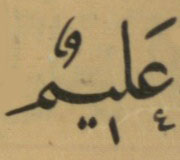 عَلِيمٌ
١ ٤